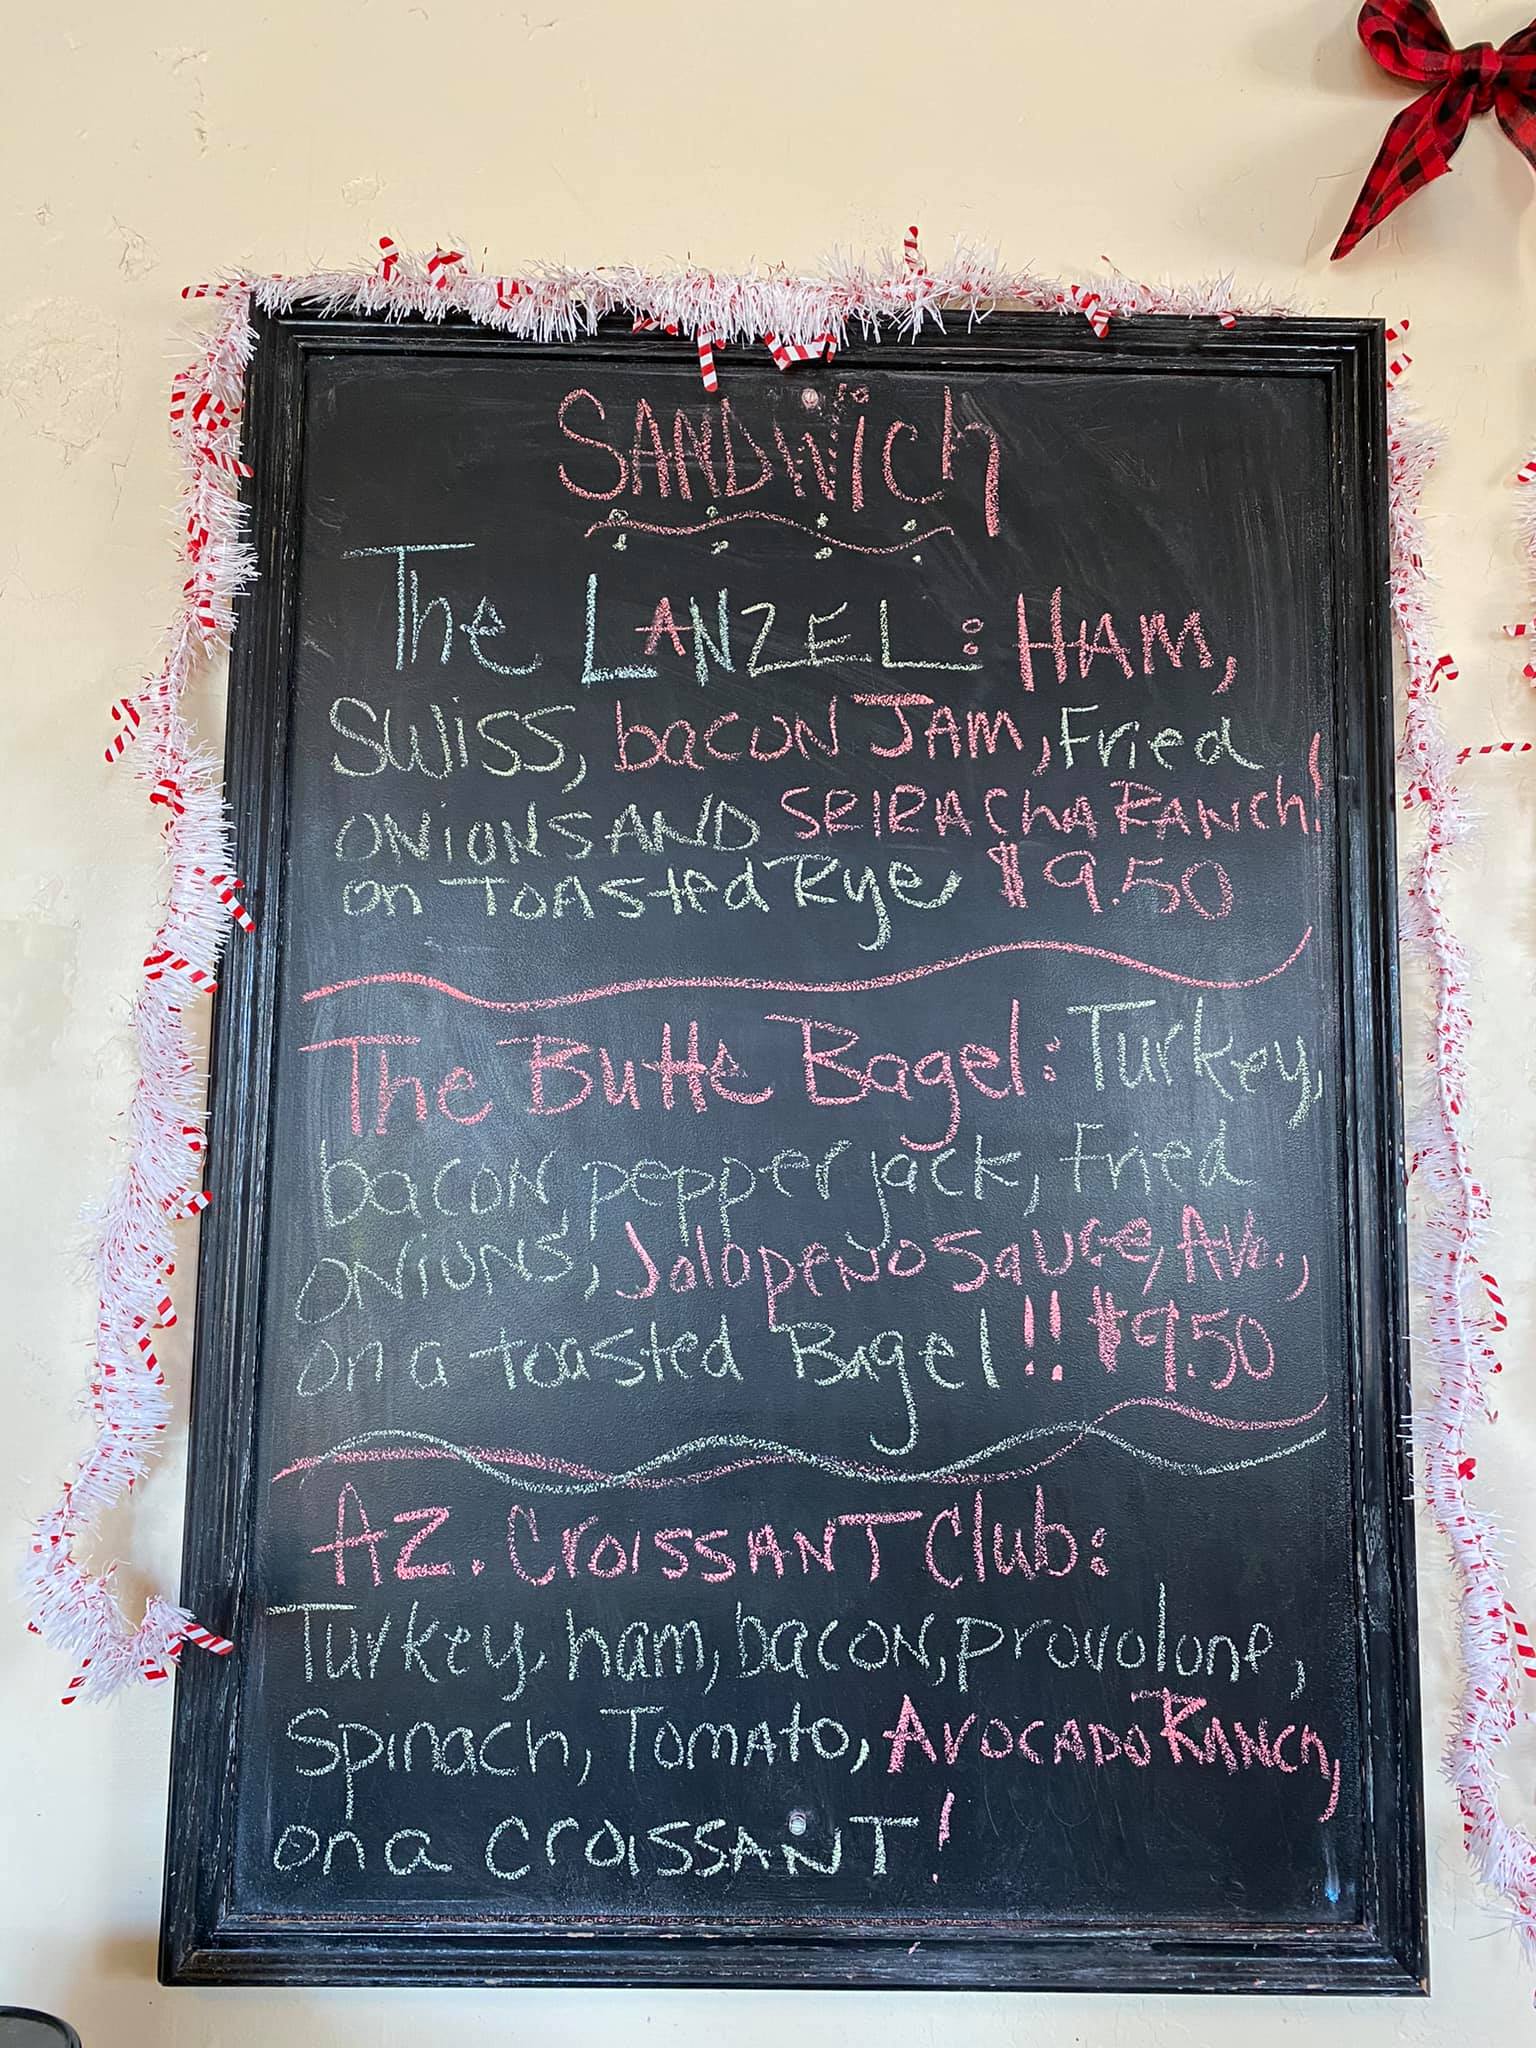 SANDWich
The LANZEL: HAM,
Swiss, bacon JAM, Fried
ONIONS AND SRIRACHA RANCH!
on TOASted Rye, $9.50
The Butte Bagel: Turkey,
bacon, pepper jack, Fried
ONIONS, Jalapeno Sauce, Avo.,
on a toasted Bagel!! $9.50
AZ. CROISSANT Club:
Turkey, ham, bacon, provolone,
Spinach, TOMAto, AVOCADO RANCH,
on a CROISSANT!